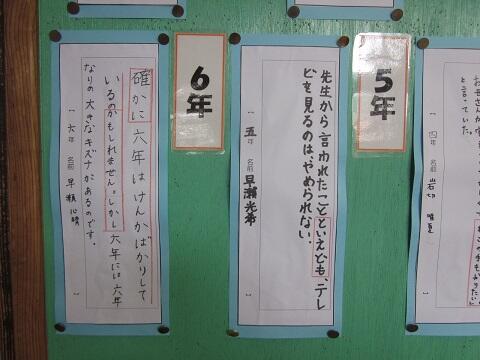 と言っていた。
四年 名前 岩切 唯夏
5年
先生から言われたことといえども、テレ
ビを見るのは、やめられない。
五年 名前 早瀬光希
6年
確かに六年はけんかばかりして
いるのかもしれません。しかし六年には六年
なりの大きなキズナがあるのです。
六年 名前 早瀬 心晴